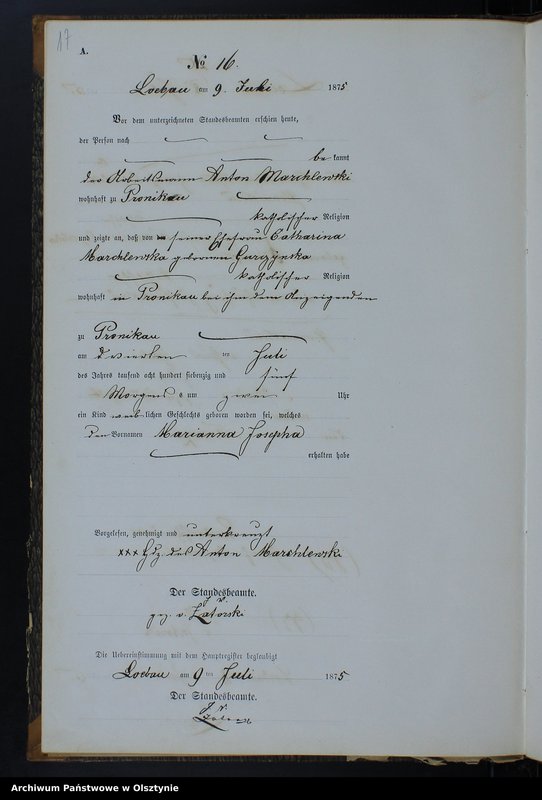 17
A.
No 16.
Loebau am 9. Juli 1875
Vor dem unterzeichneten Standesbeamten erschien heute,
der Person nach
be kannt
der Arbeitsmann Anton Marchlewski
wohnhaft zu Pronikau
katholischer Religion
und zeigte an, daß von seiner Ehefrau Catharina
Marchlewska geborenen Gurzynska
katholischer Religion
wohnhaft in Pronikau bei ihm dem Anzeigenden
zu Pronikau
am vierten ten Juli
des Jahres tausend acht hundert siebenzig und fünf
Morgens um zwei Uhr
ein Kind weiblichen Geschlechts geboren worden sei, welches
den Vornamen Marianna Josepha
erhalten habe
Vorgelesen, genehmigt und unterkreuzt
xxx Hdz. des Anton Marchlewski
Der Standesbeamte.
J. V.
gez. v. Zatorski
Die Uebereinstimmung mit dem Hauptregister beglaubigt
Loebau am 9 ten Juli 1875
Der Standesbeamte.
J. V.
Archiwum Państwowe w Olsztynie